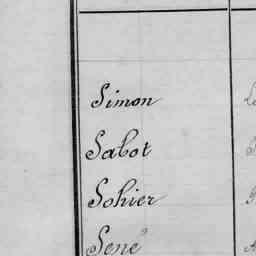 Simon
Sabot
Sohier
Sené